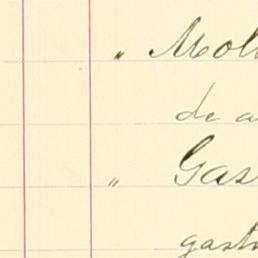 „ Mol
de a
„ Gas
gast